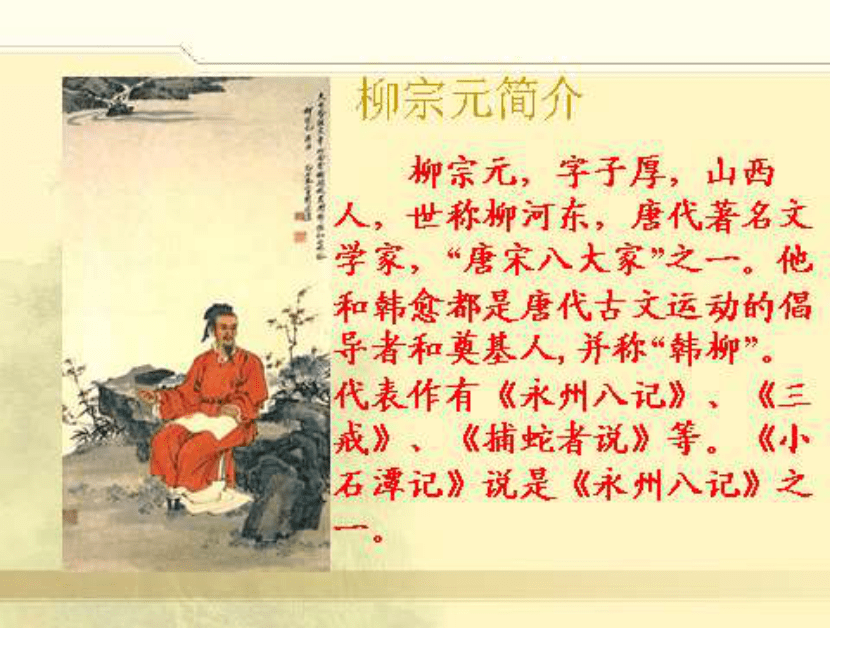 柳宗元简介
柳宗元，字子厚，山西
人，世称柳河东，唐代著名文
学家，“唐宋八大家”之一。他
和韩愈都是唐代古文运动的倡
导者和奠基人，并称“韩柳”。
代表作有《永州八记》、《三
戒》、《捕蛇者说》等。《小
石潭记》说是《永州八记》之
一。